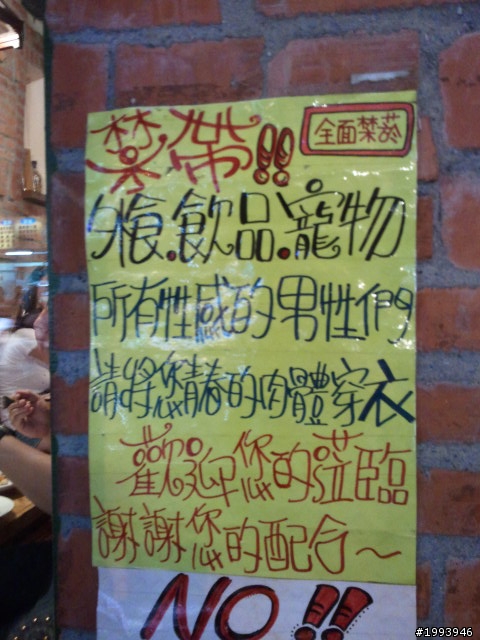 禁帶!!
全面禁菸
外食.飲品.寵物
所有性感的男性們
請將您青春的肉體穿衣
歡迎您的蒞臨
謝謝您的配合～
NO!!
#1993946